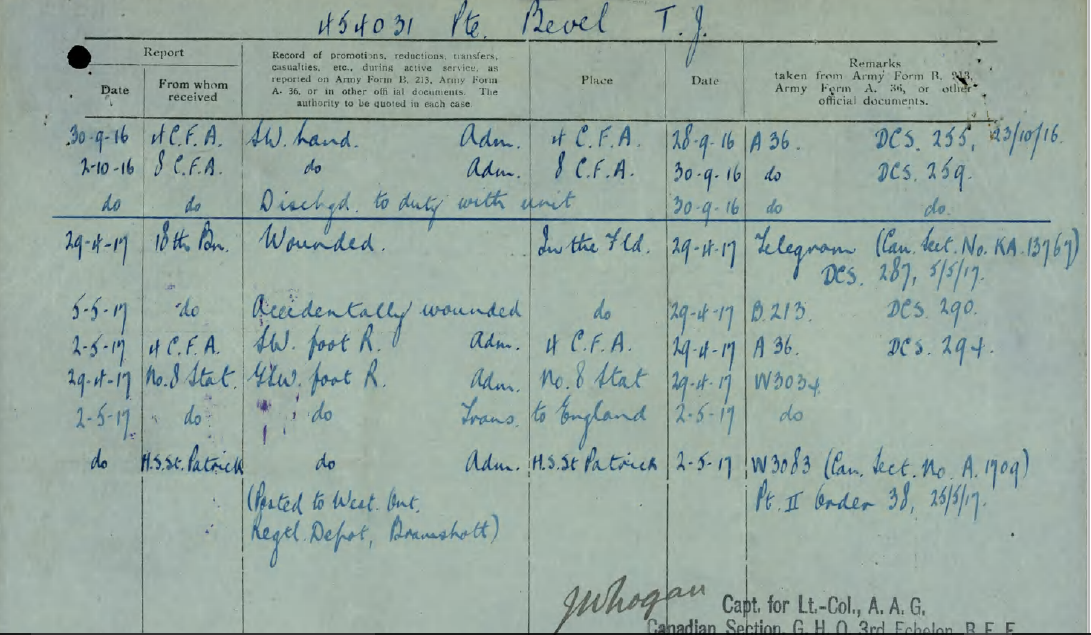 454031 Pte. Bevel T. J.
Report
Date
From whom received
Record of promotions, reductions, transfers, casualties, etc., during active service, as reported on Army Form B. 213, Army Form A. 36, or in other official documents. The authority to be quoted in each case.
Place
Date
Remarks taken from Army Form B. 213, Army Form A. 36, or other official documents.
30-9-16 4 C.F.A. SW. hand. Adm. 4 C.F.A. 28-9-16 A 36. DCS. 255, 23/10/16.
2-10-16 8 C.F.A. do Adm. 8 C.F.A. 30-9-16 do DCS. 259.
do do Dischgd. to duty with unit 30-9-16 do do.
29-4-17 18th Bn. Wounded. In the Fld. 29-4-17 Telegram (Can. Sect. No. KA. 13767)
DCS. 287, 5/5/17.
5-5-17 do Accidentally wounded do 29-4-17 B.213. DCS. 290.
2-5-17 4 C.F.A. SW. foot R. Adm. 4 C.F.A. 29-4-17 A 36. DCS. 294.
29-4-17 No.8 Stat. GSW. foot R. Adm. No. 8 Stat 29-4-17 W3034
2-5-17 do do Trans. to England 2-5-17 do
do H.S.St. Patrick do Adm. H.S.St Patrick 2-5-17 W3083 (Can. Sect. No. A. 1909)
(Posted to West. Ont. Pt. II Order 38, 25/5/17.
Regtl. Depot, Bramshott)
Capt. for Lt.-Col., A. A. G.
Canadian Section, G. H. Q. 3rd Echelon, B. E. F.